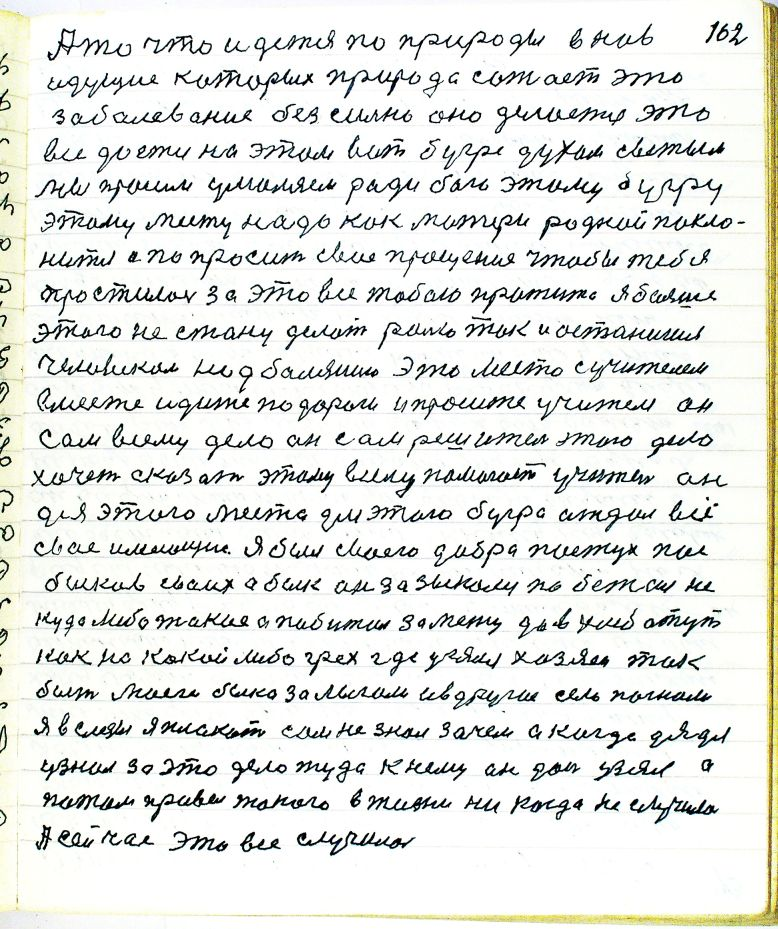 162
А то что идется по природы внов
идущие каторых природа сажает это
забалевание бессилно оно делается это
все дости на этом вот бугре духом светым
мы просим умоляем ради бога этому бугру
этому месту надо как матери родной покло-
нится а попросит свае прощение чтобы тебя
простилов за это все табаю прожито я больше
этого не стану делат рало так и останишся
человеком над балянию это место сучителем
вместе идите по дороги и просите учителя он
сам всему дело он сам решител этого дело
хочет сказат этому всему помогает учител он
для этого места для этого бугра отдал всё
свае имеющие. Я был своего добра пастух пас
быков своих а бык он зазыкому побежал не
куда либо такие а побижал за межу да в хлеб а тут
как на какой либо грех где узялся хозяен так
быт моего быка за м и в другое село погнали
я в слезы я плакат сам не знал зачем а когда дядя
узнал за это дело туда к нему он дал узял а
потом привел такого в жизни ни когда не случилос
А сейчас это все случилос